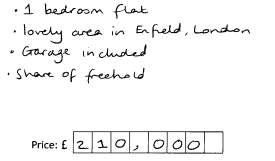 · 1 bedroom flat
· lovely area in Enfield, London
· Garage included
· Share of freehold
Price: £ 210,000